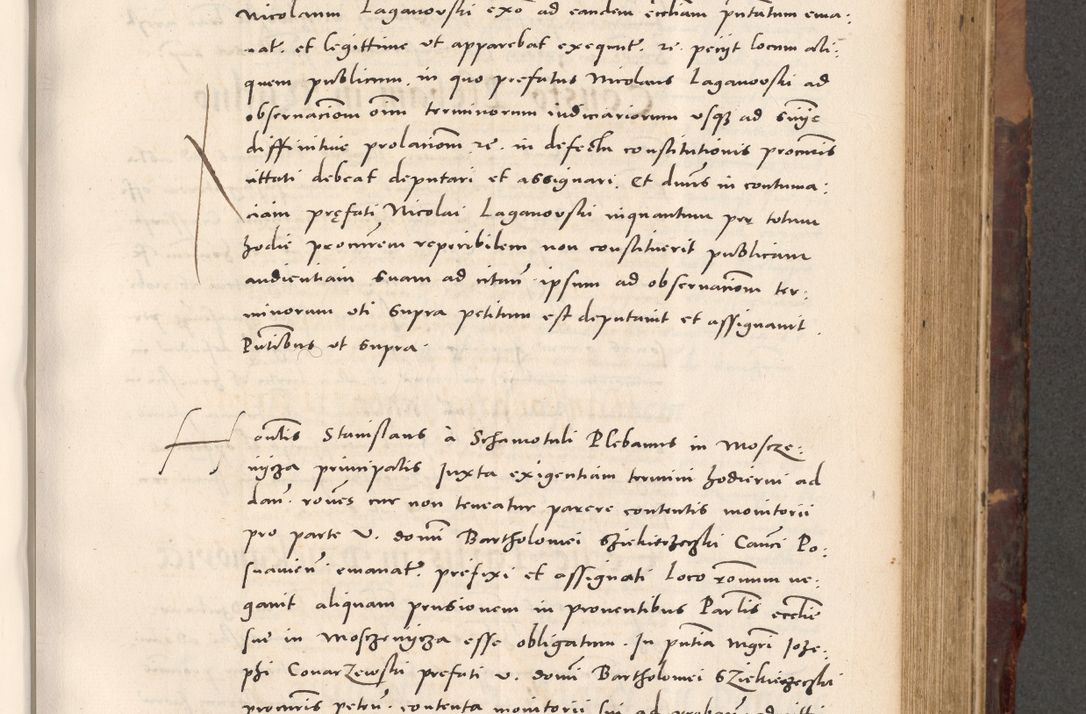 Nicolaum Laganovski exo ad eandem eccliam putatum ema:
nat. et legittime ut apparebat exequut. re. petyt locum ali:
quem publicum in quo prefatus Nicolaus Laganovski ad
observaciom oim terminorum iudiciariorum usq ad snie
diffinitive prolaciom re. in defectu constitutionis procuris
debeat deputari et assignari. Et dnus in contuma:
ciam prefati Nicolai Laganovski inquantum per totum
hodie procurem reperibilem non constituerit publicam
audientiam suam ad citan ipsum ad observaciom ter:
minorum uti supra petitum est deputavit et assignavit.
Putibus ut supra.
Honlis Stanislaus à Schamotuli Plebanus in Moscze:
nycza principalis Juxta exigentiam termini hodierni ad
dan. rones cur non teneatur parere contentis monitorii
pro parte v. domi Bartholomei Sziekierzeczki Canci Po:
snanien emanat. prefixi et assignati loco ronum ne:
gavit aliquam pensionem in proventibus Parlis ecclie
sue in Mosczenycza esse obligatum. In putia mgri Joze:
phi Conarzewski prefati v. domi Bartholomei Sziekierzeczki
procuris peten. contenta monitorii sui ad